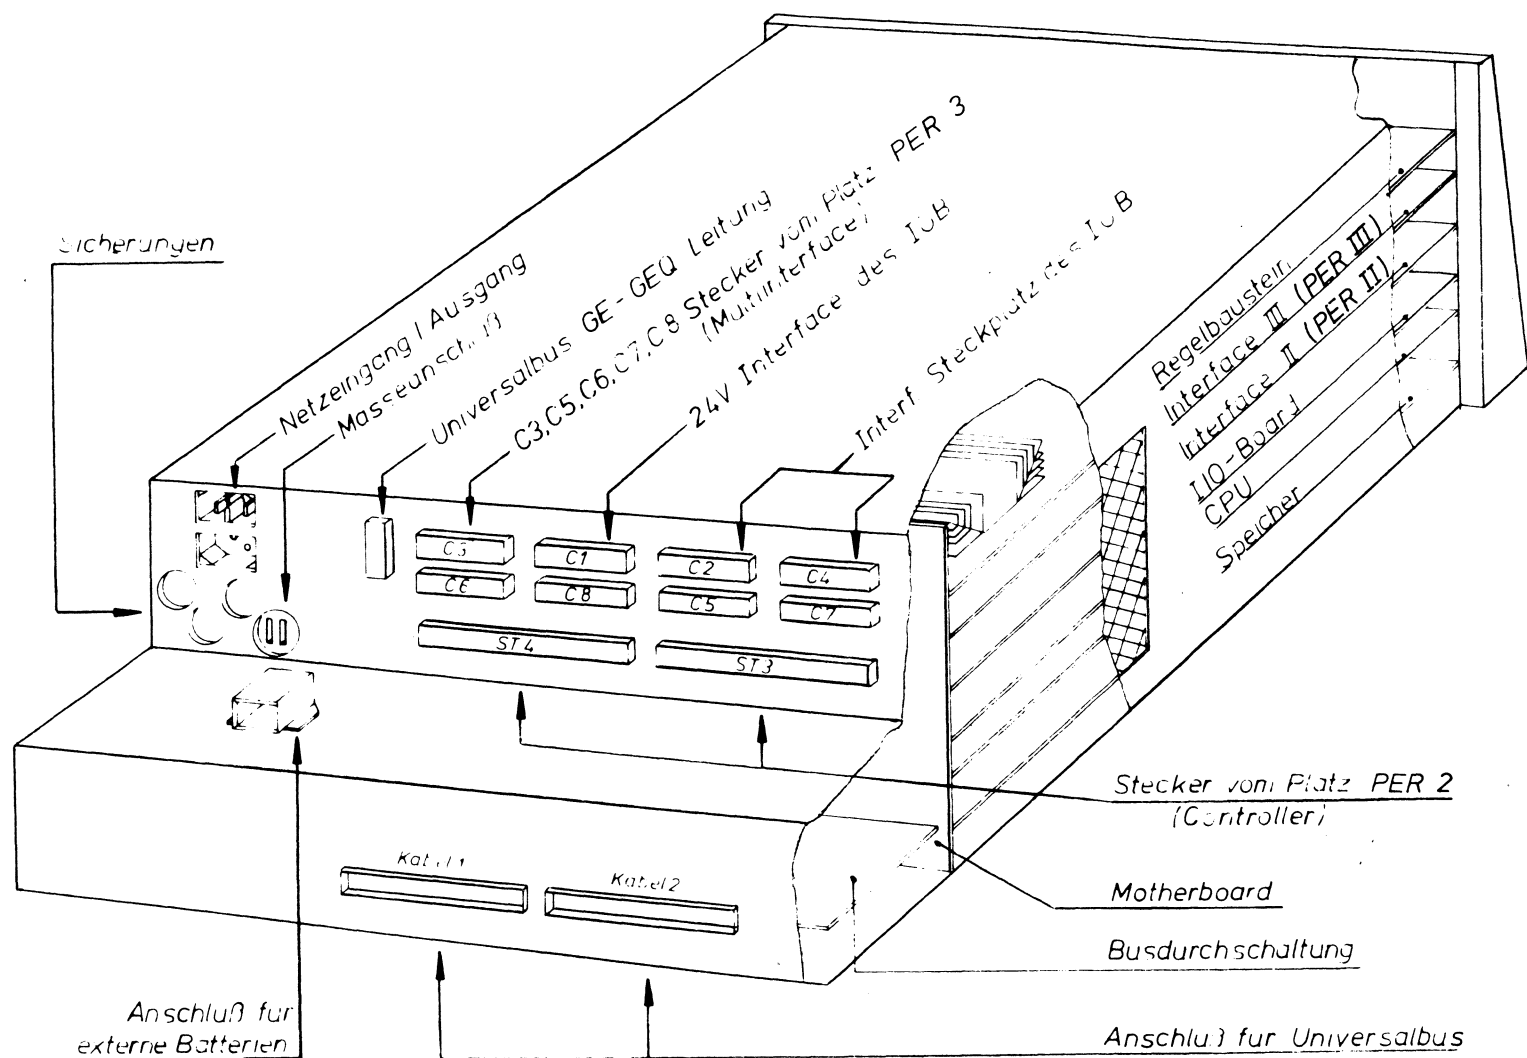 Sicherungen
Netzeingang / Ausgang
Masseanschluß
Universalbus GE-GEQ Leitung
C3,C5,C6,C7,C8 Stecker vom Platz PER 3
(Multiinterface)
24V Interface des IOB
Interf Steckplatz des IOB
Regelbaustein
Interface III (PER III)
Interface II (PER II)
I/O-Board
CPU
Speicher
C3
C1
C2
C4
C6
C8
C5
C7
ST4
ST3
Stecker vom Platz PER 2
(Controller)
Kabel 1
Kabel 2
Motherboard
Busdurchschaltung
Anschluß fur
externe Batterien
Anschluß fur Universalbus